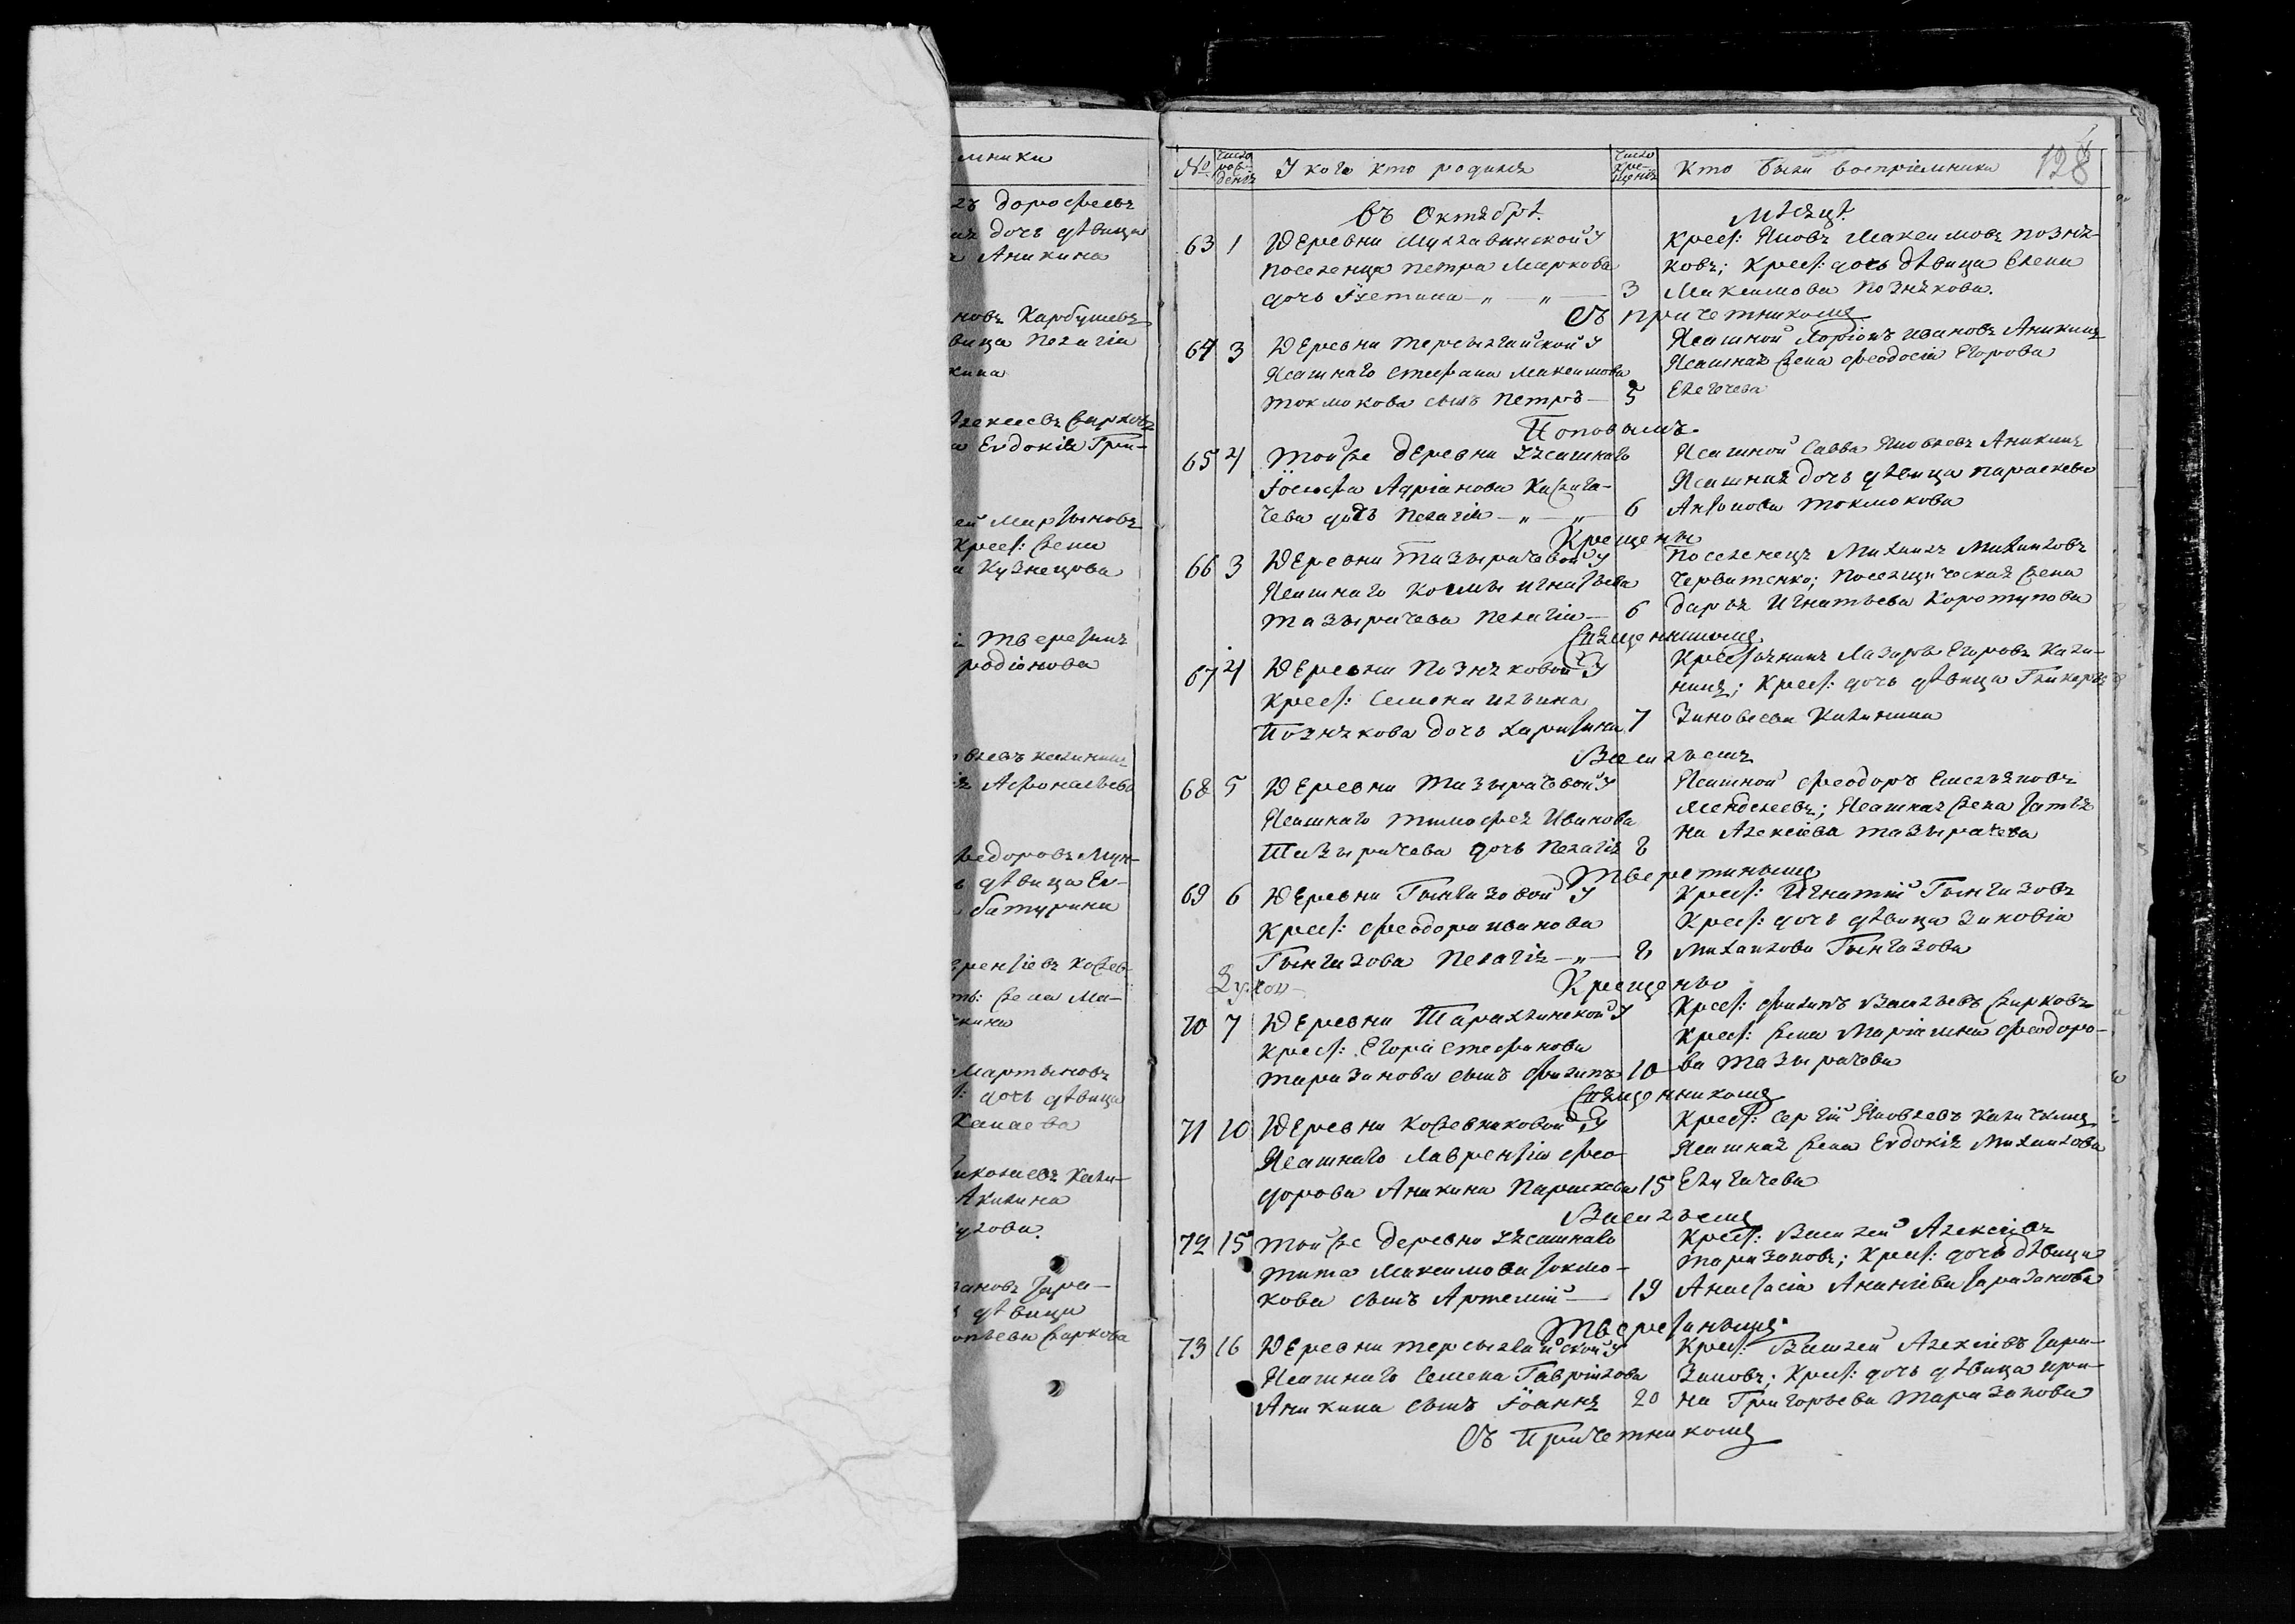 мники
зъ дорофеевъ
ая дочь дѣвица
Аникина
новъ Карбушевъ
вица Пелагіа
кина
лексеевъ Жирковъ
Евдокія Гри-
ей Мартыновъ
Крест: жена
Кузнецова
Тверетинъ
родіонова
влевъ калининъ
Афонасьева
Федоровъ Мун-
дѣвица Ев-
батурина
рентіевъ Кожев-
жена Ма-
кина
Мартыновъ
: дочь дѣвица
Канаева
иколаевъ Кали-
Акилина
зова
ановъ Тара-
дѣвица
Жаркова
№ Число рож-денія У кого кто родился Число кре-щенія Кто были воспріемники 128
въ Октябрѣ Мѣсяцѣ
63 1 Деревни Муллавинской У
поселенца Петра Маркова
дочь Іустина — „ — „ — 3
Крест: Яковъ Максимовъ Позня-
ковъ; Крест: дочь дѣвица Елена
Максимова Познякова.
Съ причетникомъ
64 3 Деревни Терсылгайской У
Ясашнаго Стефана Максимова
Токмокова сынъ Петръ — 5
Ясашной Ларіонъ Ивановъ Аникинъ
Ясашная жена Феодосіа Егорова
Поповымъ.
65 4 Той же деревни Ясашнаго
Іосифа Адріанова Калига-
чева дочь Пелагіа — „ — „ — 6
Ясашной Савва Яковлевъ Аникинъ
Ясашная дочь дѣвица Параскева
Антонова Токмокова
Крещены
66 3 Деревни Тазырачевой У
Ясашнаго Космы Игнатьева
Тазырачева Пелагіа — 6
Поселенецъ Михаилъ Михаиловъ
Червитенко; Поселщическая жена
Дарья Игнатьева Коротупова
Священникомъ
67 4 Деревни Позняковой У
Крест: Семена Ильина
Познякова дочь Харитина 7
Крестьянинъ Лазарь Егоровъ Кали-
нинъ; Крест: дочь дѣвица Гликерія
Зиновьева Калинина
Васильемъ
68 5 Деревни Тазырачевой У
Ясашнаго Тимофея Иванова
Тазырачева дочь Пелагія 8
Ясашной Феодоръ Емельяновъ
Менделеевъ; Ясашная жена Татья
на Алексіева Тазырачева
Тверетинымъ
69 6 Деревни Гынгазовой У
Крест: Феодора Иванова
Гынгазова Пелагія — „ — 8
Крест: Игнатій Гынгазовъ
Крест: дочь дѣвица Зиновіа
Михаилова Гынгазова
Крещено
70 7 Деревни Тарахлинской У
Крест: Егора Стефанова
Таразанова сынъ Филипъ 10
Крест: Филипъ Васильевъ Жирковъ
Крест: жена Маріамна Феодоро-
ва Тазырачева
Священникомъ
71 10 Деревни Кожевниковой У
Ясашнаго Лаврентія Фео-
дорова Аникина Параскева 15
Крест: Сергій Яковлевъ Каличкинъ
Ясашная жена Евдокія Михаилова
Елугачева
Васильемъ
72 15 Той же деревни Ясашнаго
Тита Максимова Токмо-
кова сынъ Артемій — 19
Крест: Василей Алексіевъ
Таразановъ; Крест: дочь дѣвица
Анастасіа Ананіева Таразанова
Тверетинымъ.
73 16 Деревни Терсылгайской У
Ясашнаго Семена Гавріилова
Аникина сынъ Іоаннъ 20
Крест: Василей Алексіевъ Тара-
зановъ; Крест: дочь дѣвица Ири-
на Григорьева Таразанова
Съ Причетникомъ